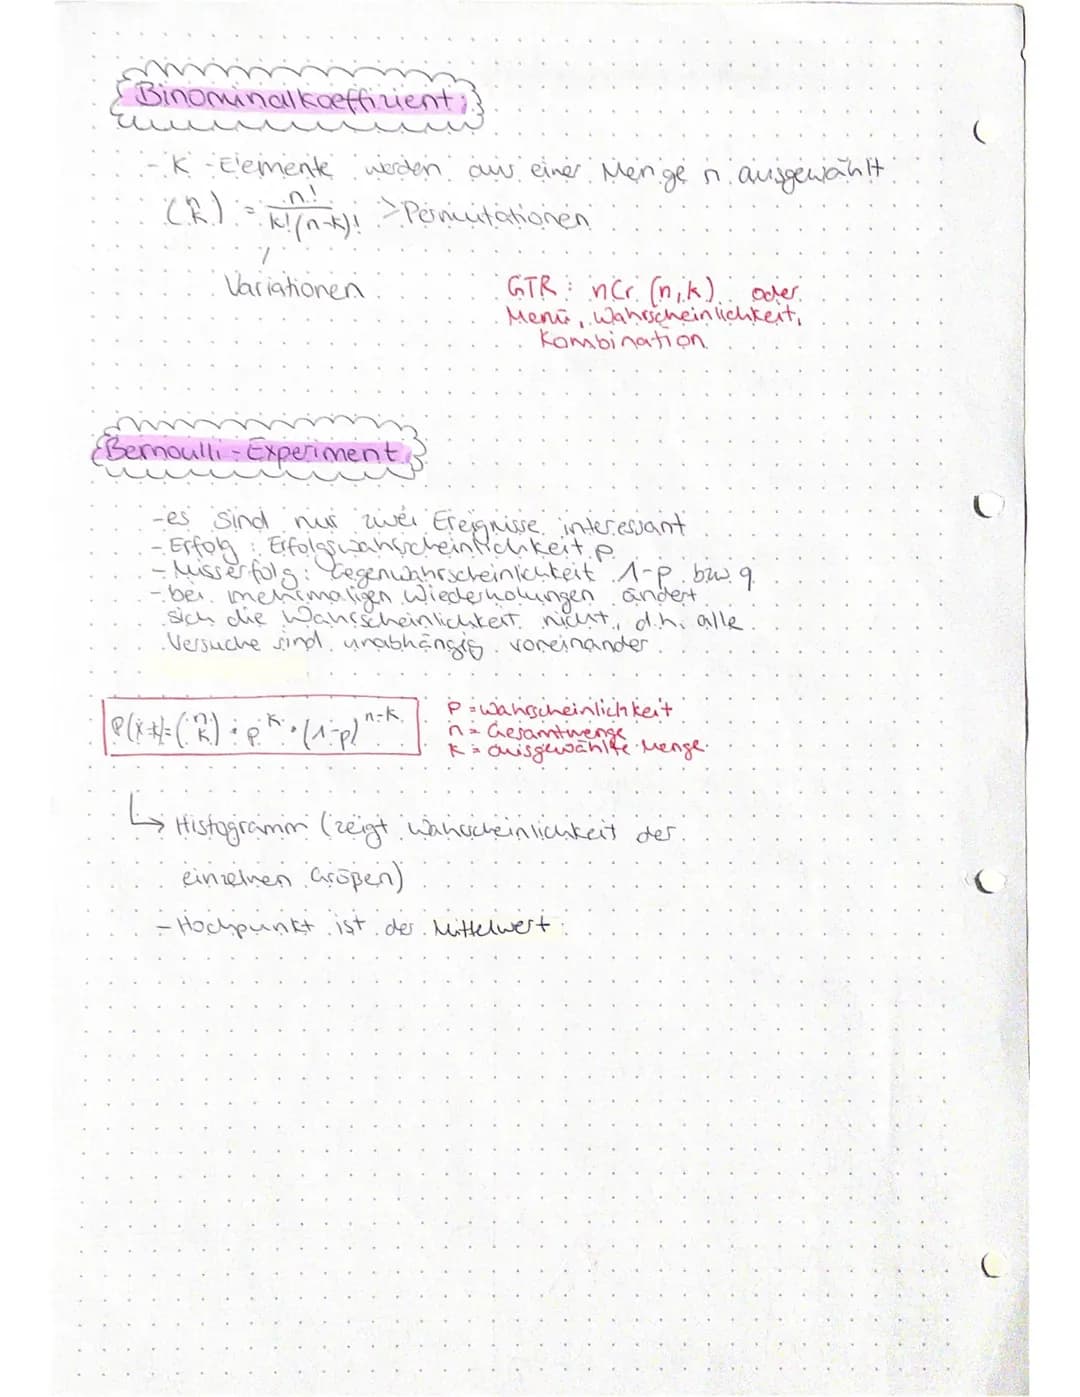 Binominalkoeffizient:
- K-Elemente werden aus einer Menge n ausgewählt
(n k) = n! / k!(n-k)! > Permutationen
Variationen
GTR: nCr (n,k) oder
Menü, Wahrscheinlichkeit,
Kombination
Bernoulli-Experiment
- es sind nur zwei Ereignisse interessant
- Erfolg: Erfolgswahrscheinlichkeit p
- Misserfolg: Gegenwahrscheinlichkeit 1-p bzw q
- bei mehrmaligen Wiederholungen ändert
sich die Wahrscheinlichkeit nicht, d.h. alle
Versuche sind unabhängig voneinander
P(X=k)=(n k) · p^k · (1-p)^n-k
P = Wahrscheinlichkeit
n = Gesamtmenge
K = ausgewählte Menge
↳ Histogramm (zeigt Wahrscheinlichkeit der
einzelnen Größen)
- Hochpunkt ist der Mittelwert